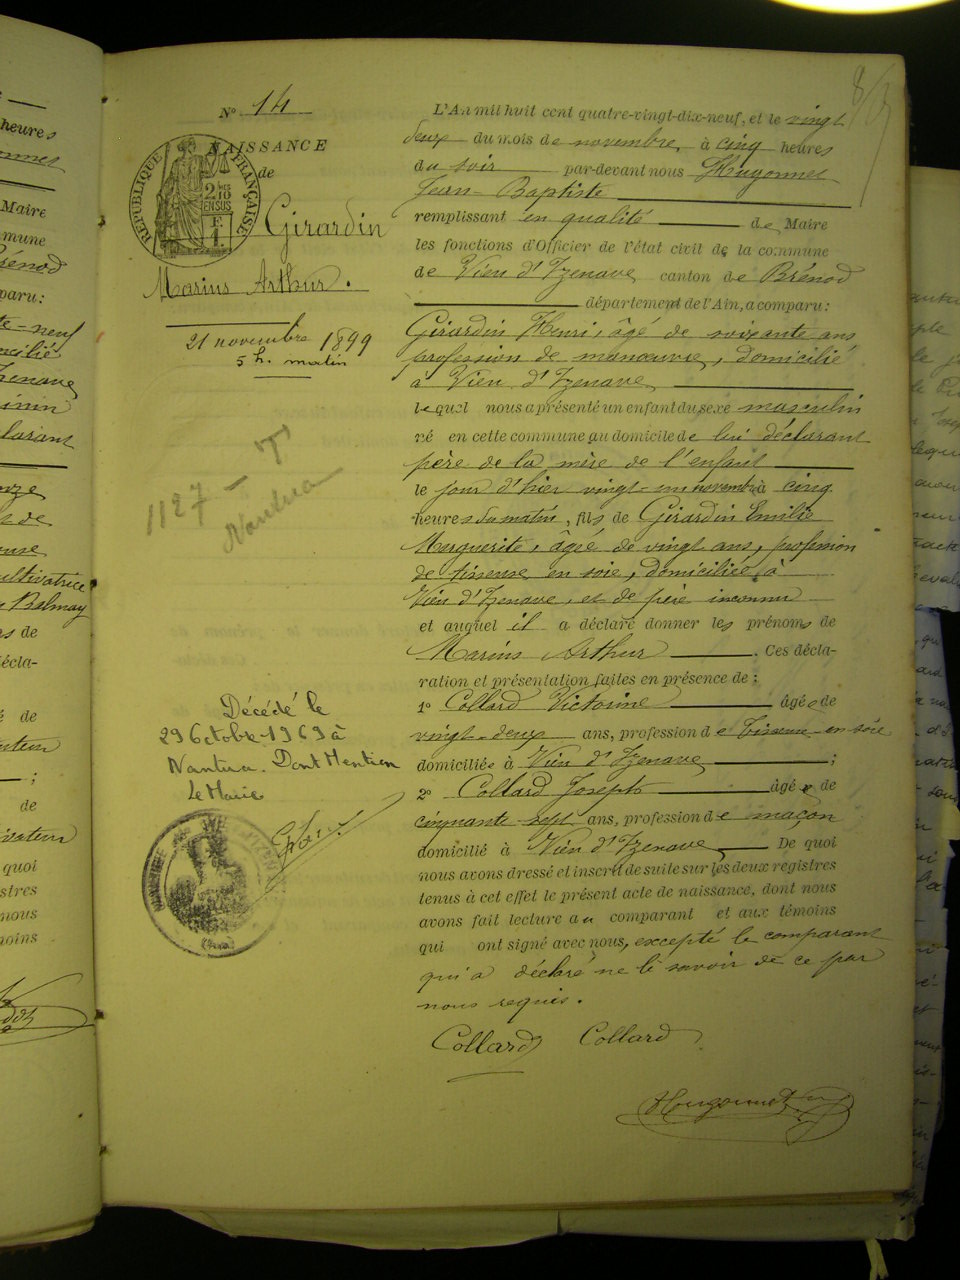 N° 14
NAISSANCE
de
RÉPUBLIQUE FRANÇAISE
Girardin
Marius Arthur.
21 novembre 1899
5 h. matin
1127 - T
Nantua
Décédé le
29 Octobre 1969 à
Nantua. Dont Mention
Le Maire
8
L'An mil huit cent quatre-vingt-dix-neuf, et le vingt
deux du mois de novembre, à cinq heures
du soir par-devant nous Hugonnet
Jean-Baptiste
remplissant en qualité de Maire
les fonctions d'Officier de l'état civil de la commune
de Vieu d'Izenave canton de Brénod
département de l'Ain, a comparu:
Girardin Henri, âgé de soixante ans
profession de manœuvre, domicilié
à Vieu d'Izenave
lequel nous a présenté un enfant du sexe masculin
né en cette commune au domicile de lui déclarant
père de la mère de l'enfant
le jour d'hier vingt-un novembre à cinq
heures du matin, fils de Girardin Emilie
Marguerite, âgée de vingt ans, profession
de tisseuse en soie, domiciliée à
Vieu d'Izenave, et de père inconnu
et auquel il a déclaré donner les prénoms de
Marius Arthur. Ces décla-
ration et présentation faites en présence de:
1° Collard Victorine âgée de
vingt-deux ans, profession de tisseuse en soie
domiciliée à Vieu d'Izenave;
2° Collard Joseph âgé de
cinquante sept ans, profession de maçon
domicilié à Vieu d'Izenave De quoi
nous avons dressé et inscrit de suite sur les deux registres
tenus à cet effet le présent acte de naissance, dont nous
avons fait lecture au comparant et aux témoins
qui ont signé avec nous, excepté le comparant
qui a déclaré ne le savoir de ce par
nous requis.
Collard Collard
Hugonnet